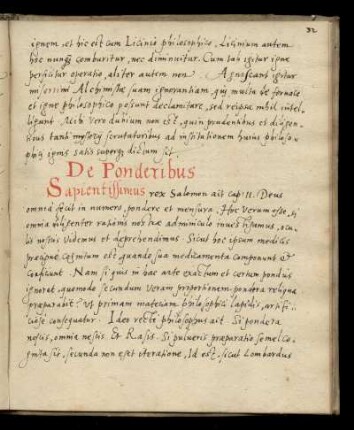 32
ignem, et hic est cum Licinio philosophico. Licinium autem
hoc nunq̃ comburitur, nec diminuitur. Cum tali igitur igne
perficitur operatio, aliter autem non. Agnoscant igitur
miserrimi Alchymistæ suam ignorantiam, qui multa de fornace
et igne philosophico possunt declamitare, sed reipsa nihil intel-
ligunt. Mihi vero dubium non est, quin prudentibus et diligen-
tibus scrutatoribus ad institutionem huius philoso-
phici ignis satis superq̃ dictum sit.
De Ponderibus
Sapientissimus rex Salomon ait cap: 11. Deus
omnia fecit in numero, pondere et mensura. Hoc verum esse, si
omnia diligenter rationis nostræ adminiculo investigamus, ocu-
lis nostris videmus et deprehendimus. Sicut hoc ipsum medicis
præcipue cognitum est, quando sua medicamenta componunt &
conficiunt. Nam si quis in hac arte exactum et certum pondus
ignorat, quomodo secundum veram proportionem pondera reliqua
præparabit? Ut primam materiam philosophici lapidis, artifi-
ciose consequatur. Ideo recte philosophus ait. Si pondera
nescis, omnia nescis. Et Rasis. Si pulveris præparatio semel co-
gnita sit, secunda non eget iteratione, Id est, sicut Lombardus